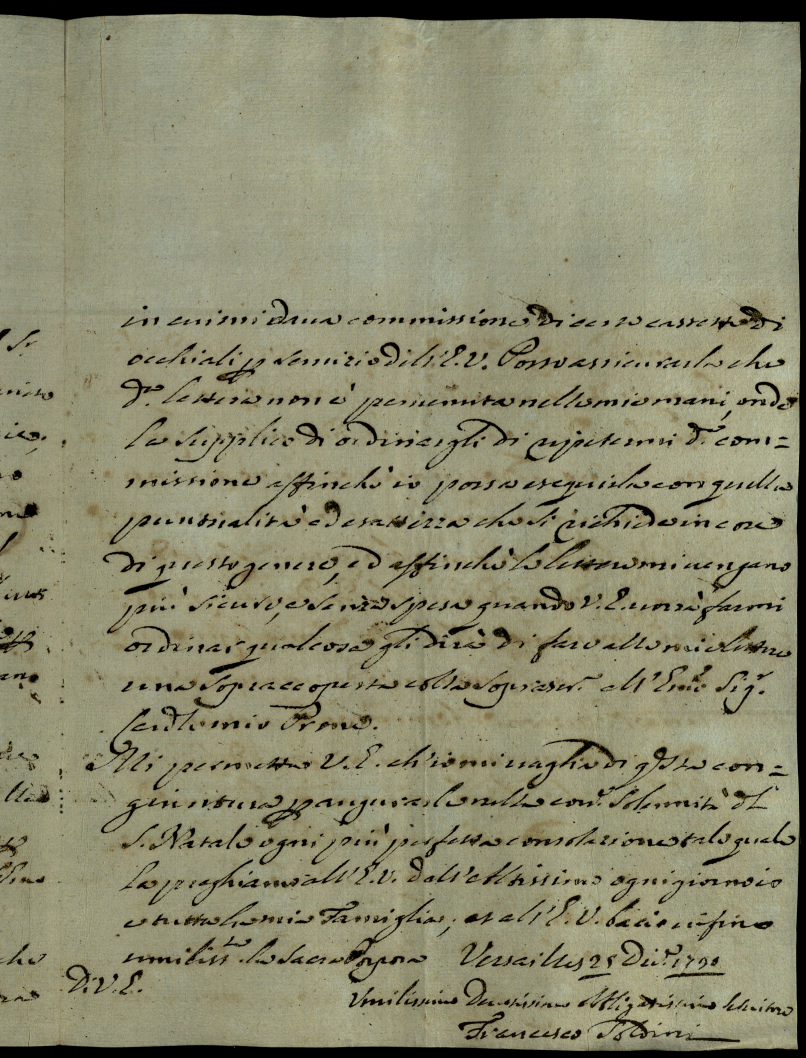 in cui mi dava commissione di certa cassetta di
occhiali p servizio dell'E.V. Posso assicurarla che
d.ª lettera non è pervenuta nelle mie mani, onde
la supplico di ordinargli di ripetermi d.ª com=
missione affinchè io possa eseguirla con quella
puntualità ed esattezza che si richiede in cose
di questo genere, ed affinchè le lettere mi vengano
più sicure, e senza spesa quando V.E. vorrà farmi
ordinar qualcosa gli dirà di fare alle mie lettere
una sopraccoperta colla soprascr.ª all'Em.º Sig.ʳ
Card.l mio Prone.
Mi permetta V.E. ch'io mi vaglia di qsta con=
giuntura p augurarle nella solennità del
S. Natale ogni più perfetta consolazione tale quale
la preghiamo all'E.V. dall'Altissimo ogni giorno io
e tutta la mia Famiglia; et all'E.V. bacio in fine
umiliss.te la Sacra Porpora Versailles 28 Di.e
Di V.E.
Umilissimo Devotissimo Obbligatissimo Servitore
Francesco